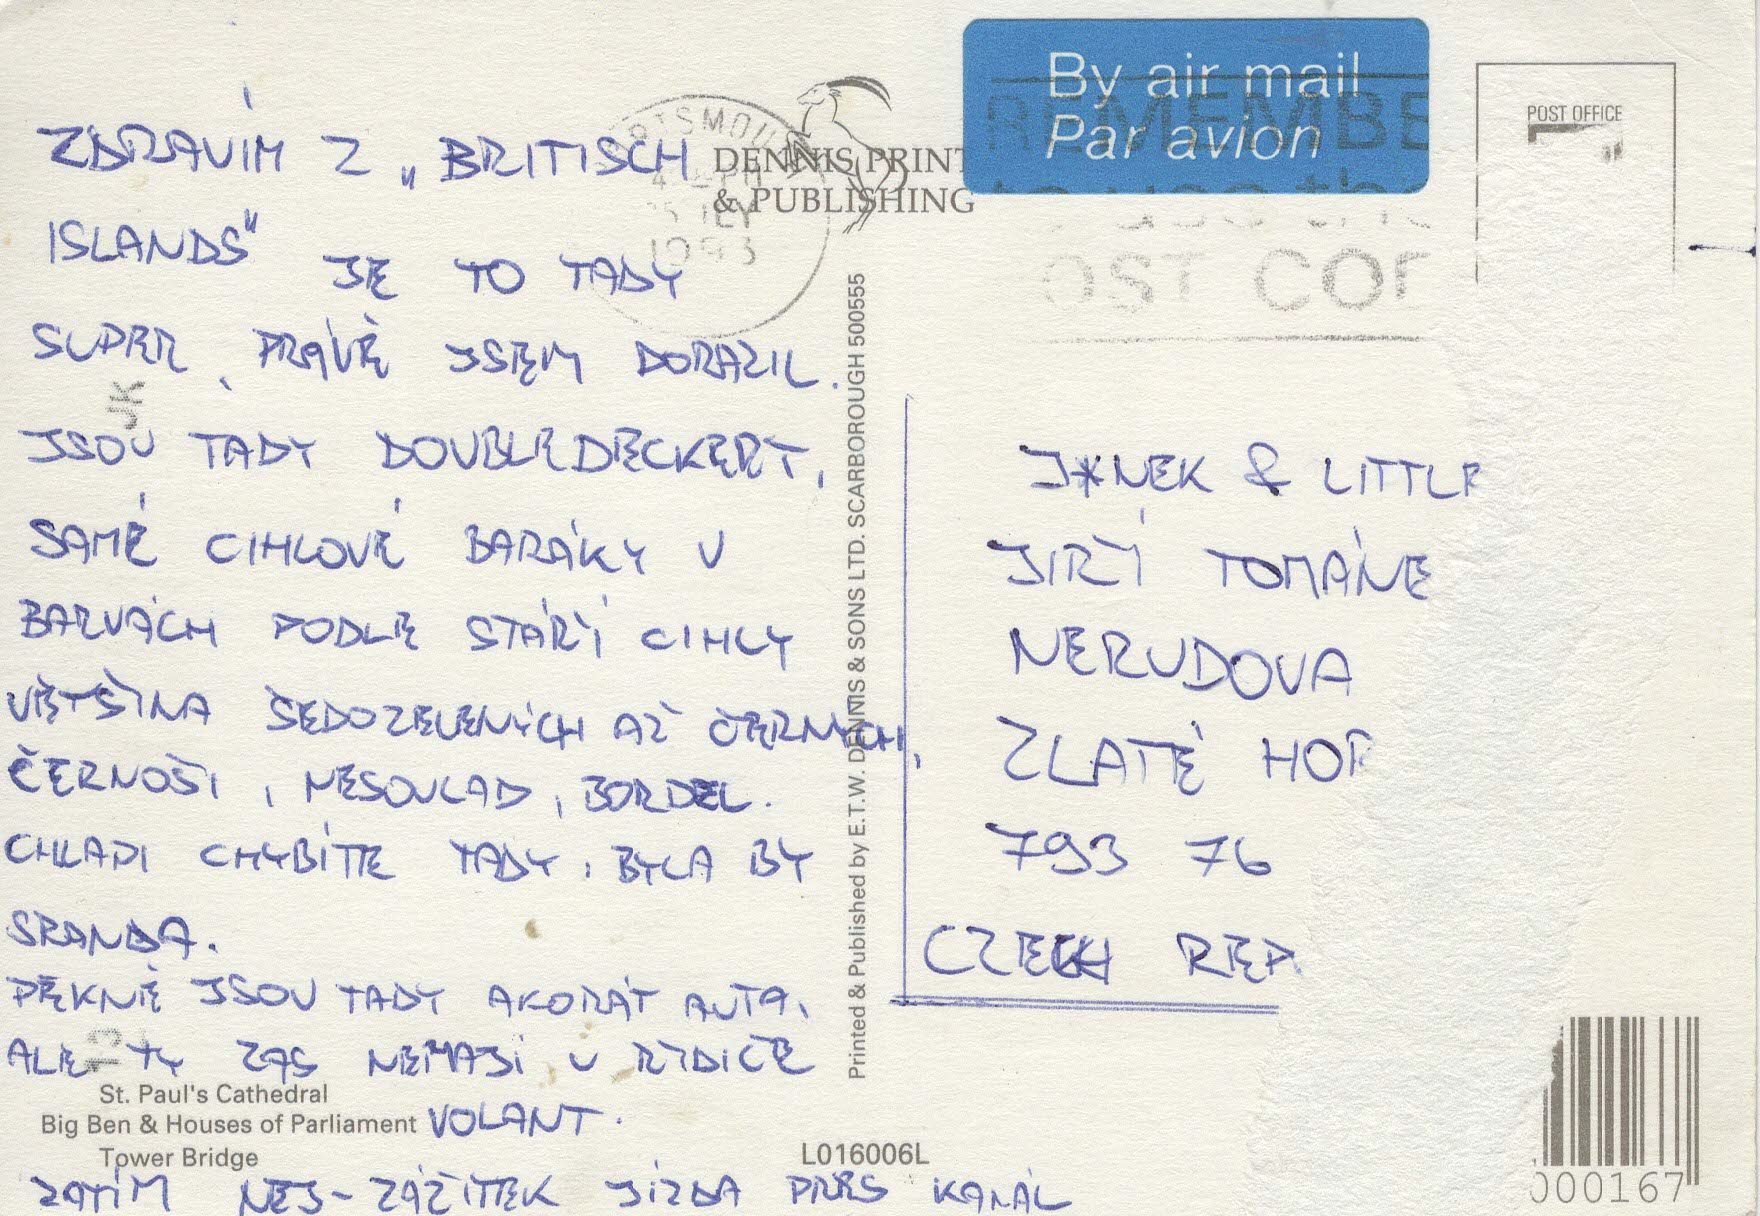 ZDRAVÍM Z „BRITISCH
ISLANDS“ JE TO TADY
SUPER, PRÁVĚ JSEM DORAZIL.
JSOU TADY DOUBLEDECKERY,
SAMÉ CIHLOVÉ BARÁKY V
BARVÁCH PODLE STÁŘÍ CIHLY
VĚTŠINA ŠEDOZELENÝCH AŽ ČERNÝCH,
ČERNOŠI, NESOULAD, BORDEL.
CHLAPI CHYBÍTE TADY, BYLA BY
SRANDA.
PĚKNÉ JSOU TADY AKORÁT AUTA,
ALE TY ZAS NEMAJÍ U ŘIDIČE
VOLANT.
ZATÍM NEJ-ZÁŽITEK JÍZDA PŘES KANÁL
St. Paul's Cathedral
Big Ben & Houses of Parliament
Tower Bridge
L016006L
DENNIS PRINT
& PUBLISHING
1993
JK
Printed & Published by E.T.W. DENNIS & SONS LTD. SCARBOROUGH 500555
By air mail
Par avion
REMEMBE
OST COD
POST OFFICE
J*NEK & LITTLE
JIŘÍ TOMÁNE
NERUDOVA
ZLATÉ HOR
793 76
CZECH REP.
000167